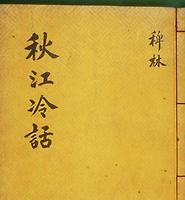 秋江冷話
稗林